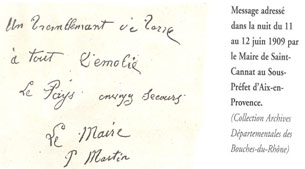 Un Tremblement de Terre
à tout Démolie
Le Pays envoyez Secours
Le Maire
P Martin
Message adressé
dans la nuit du 11
au 12 juin 1909 par
le Maire de Saint-
Cannat au Sous-
Préfet d'Aix-en-
Provence.
(Collection Archives
Départementales des
Bouches-du-Rhône)